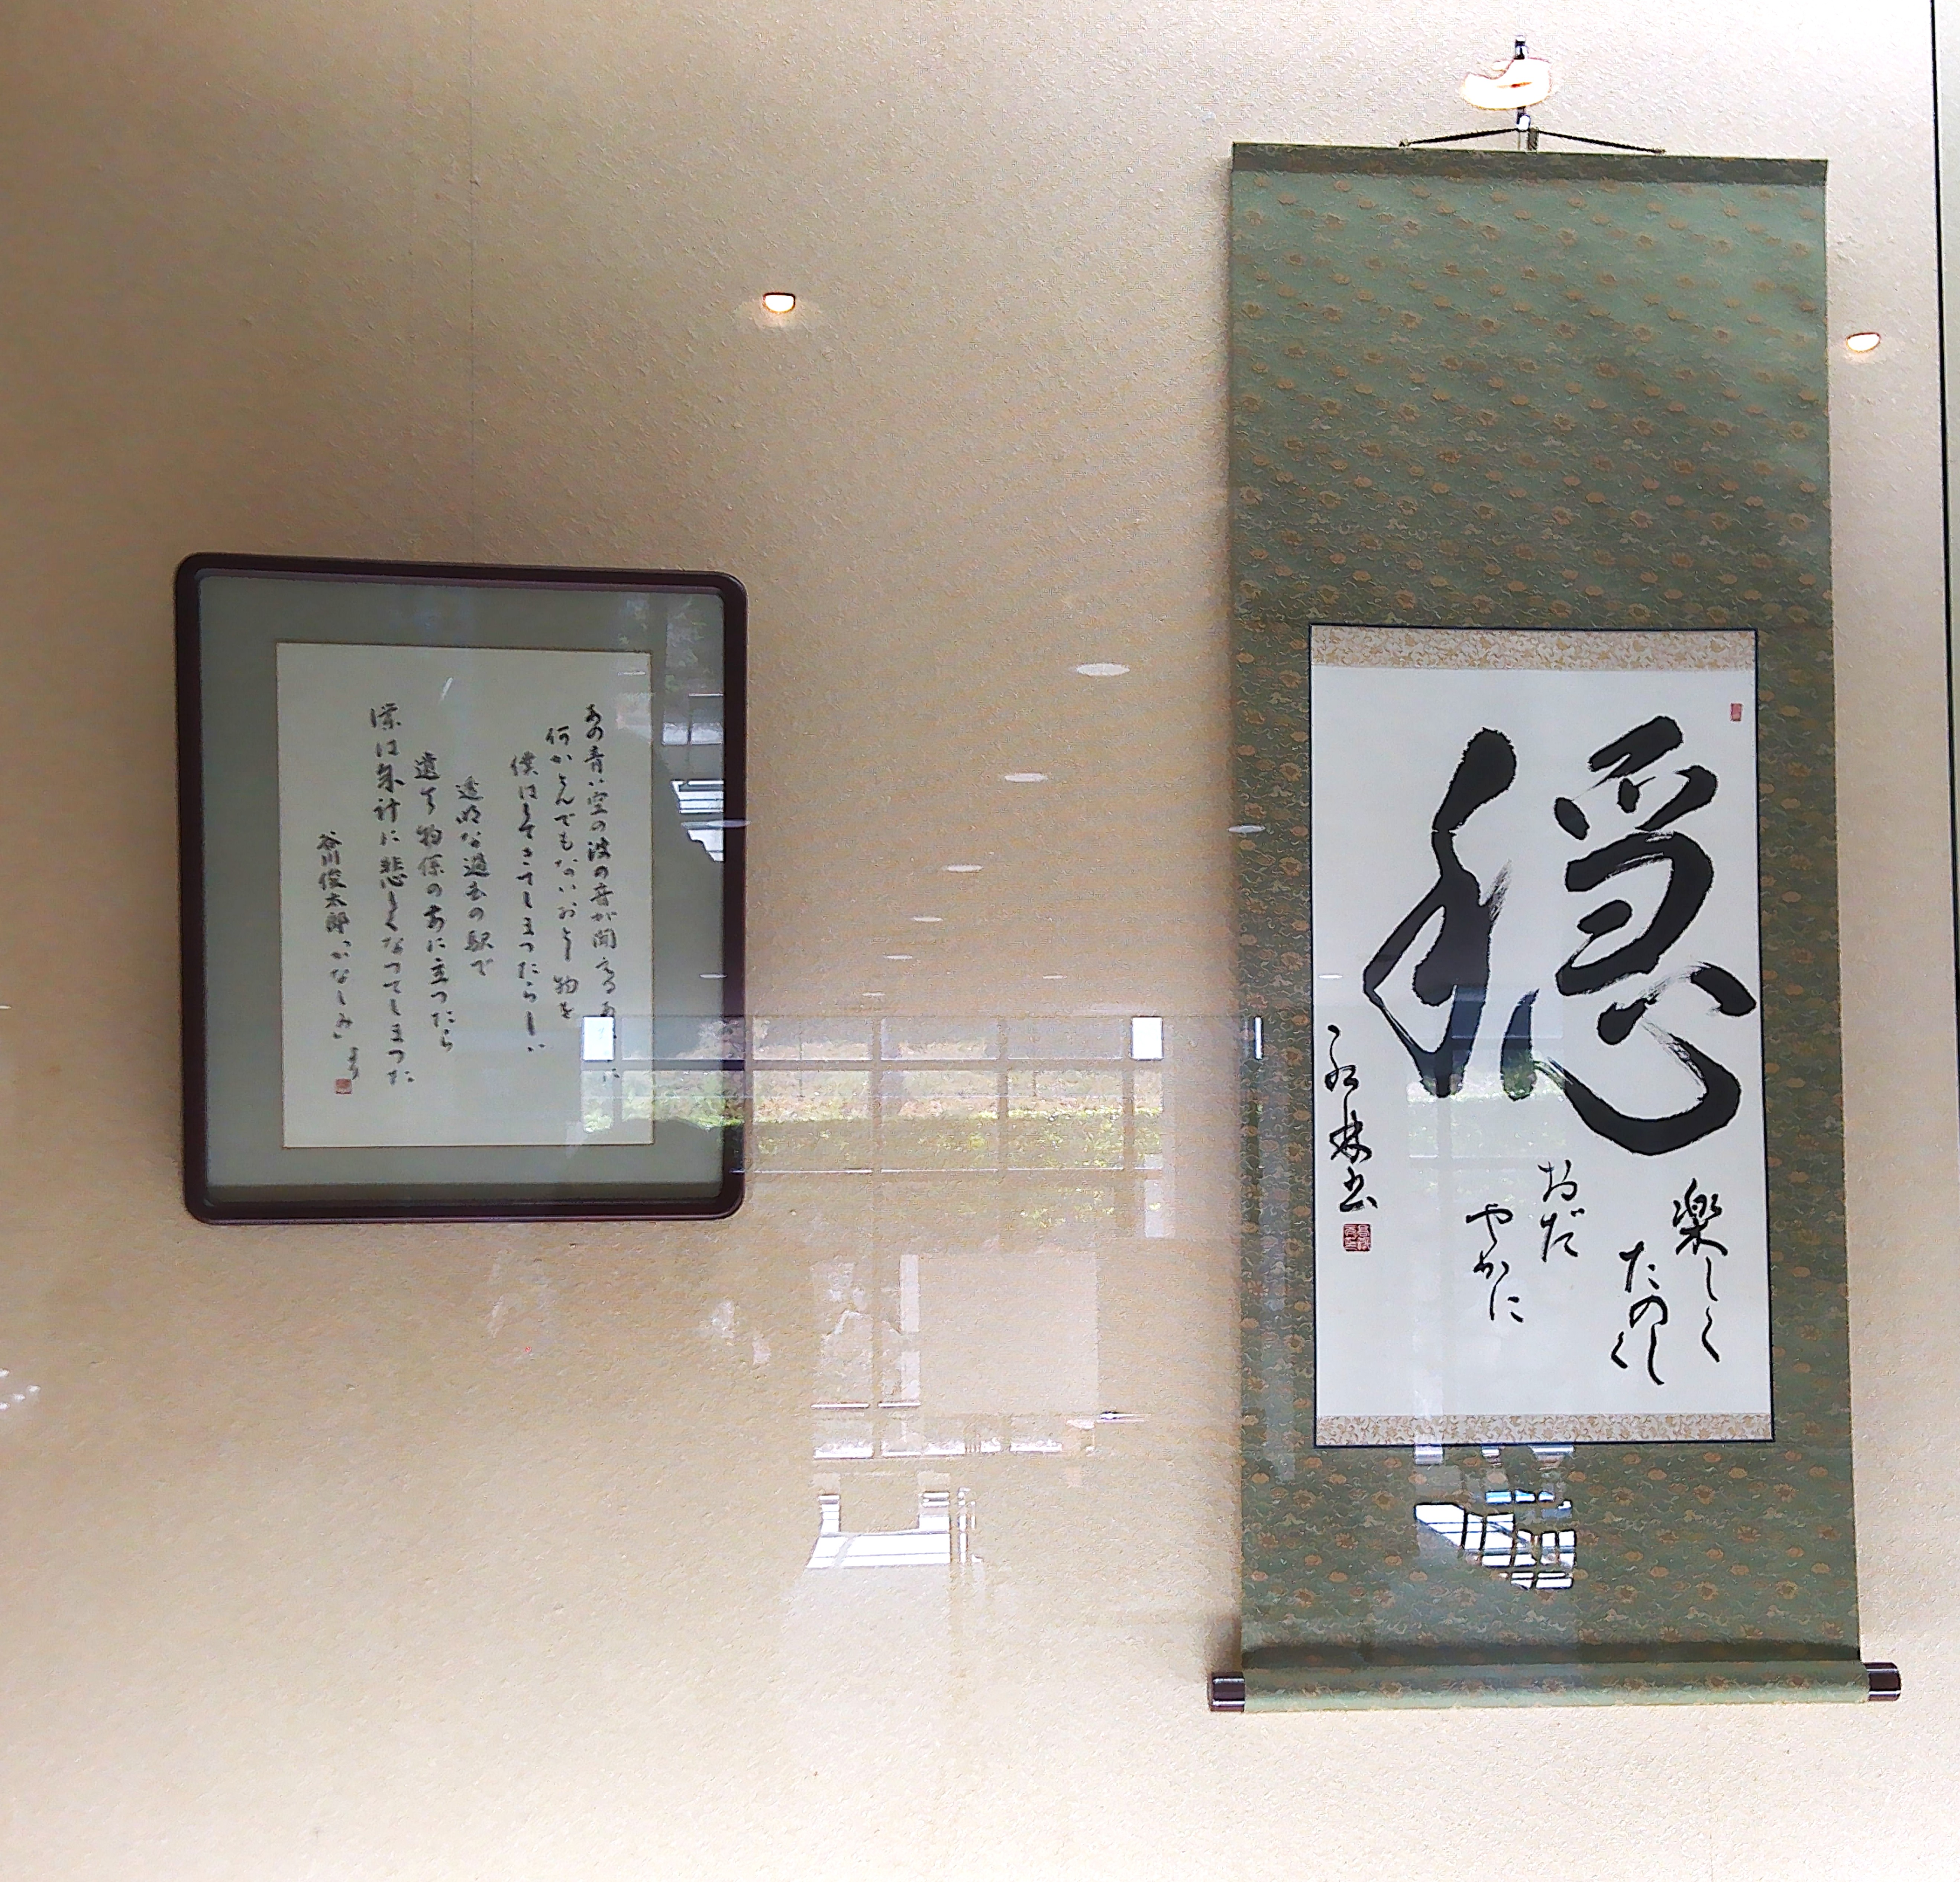 穏
楽しく
たのし
く
おだ
やかに
書
あの青い空の波の音が聞えるあたりに
何かとんでもないおとし物を
僕はしてきてしまつたらしい
透明な過去の駅で
遺失物係の前に立つたら
僕は余計に悲しくなつてしまつた
谷川俊太郎「かなしみ」